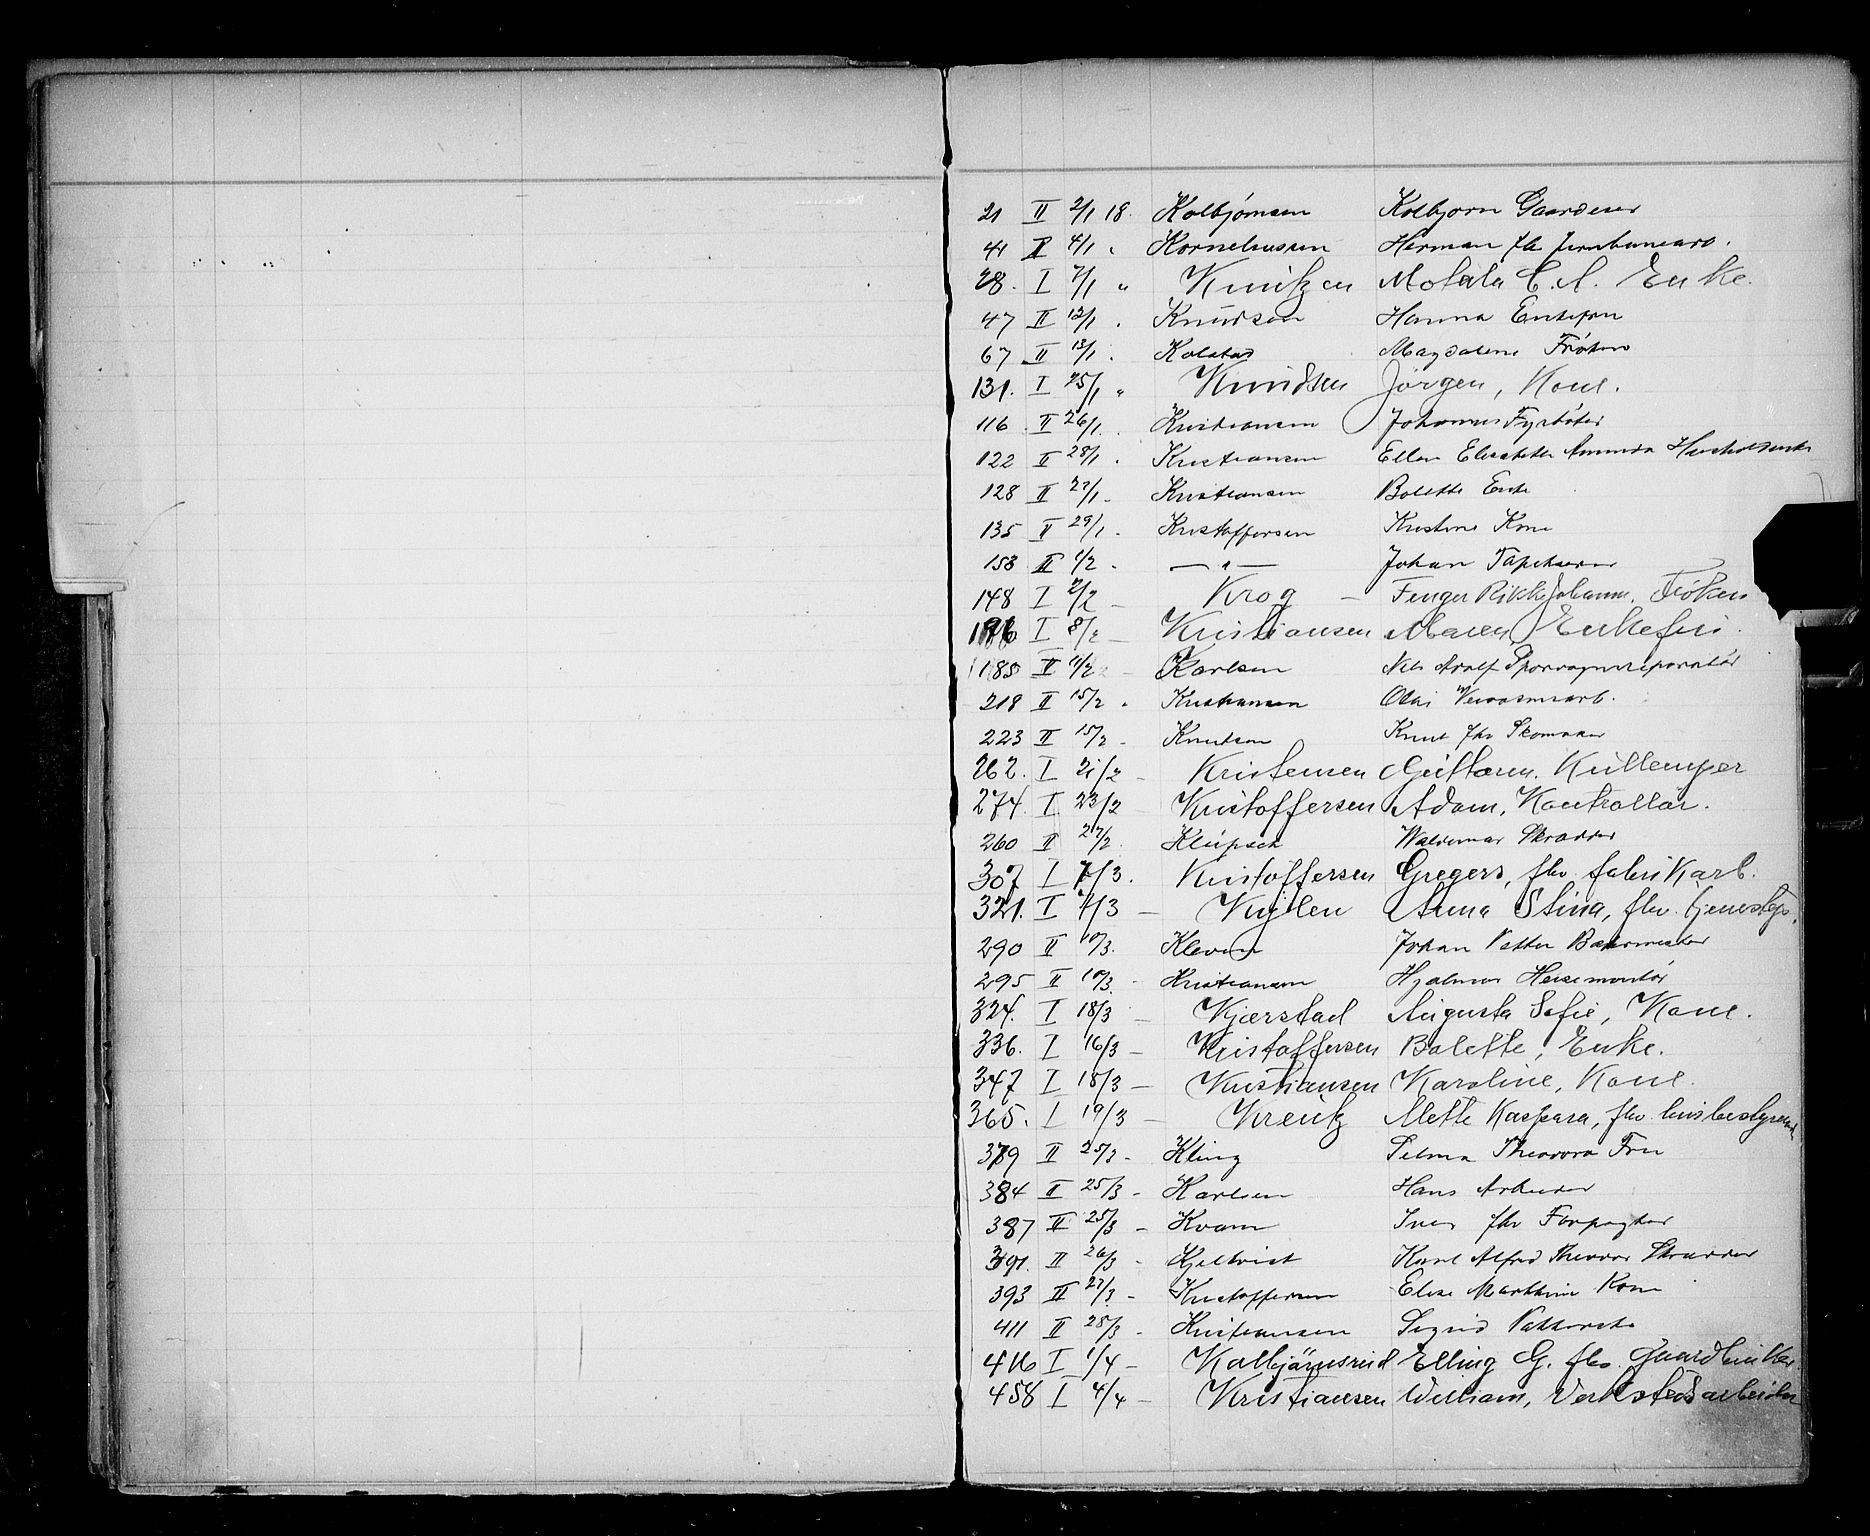 21 II 2/1 18. Kolbjörnsen Kolbjørn Gaardeier
41 I 4/1 " Korneliussen Herman fhv Jernbanearb.
28. I 7/1 " Kunitzen Motala C. A. Enke.
47 II 12/1 . Knudsen Hanna Enkefru
67 II 13/1 . Kolstad Magdalene Frøken
131. I 25/1 " Knudsen Jörgen, Kone.
116 II 26/1 . Kristiansen Johannes Fyrbøter
122 II 28/1 . Kristiansen Ellen Elisabeth Amunda
128 II 27/1 - Kristiansen Bolette Enke
135 II 29/1 - Kristoffersen Kristine Kone
153 II 1/2 - — " — Johan Tapetserer
148 I 2/2 - Krog - Fenger Rikke Johanne, Frøken
I 8/2 - Kristiansen Maren, Enkefru.
185 II 11/2 - Karlsen Nils Adolf Sporvognsreparatør
218 II 15/2 . Kristiansen Olai
223 II 15/2 - Knutsen Knut fhv Skomaker
262. I 21/2 - Kristensen Guttorm. Kullemper
274. I 23/2 Kristoffersen Adam, Kontrollör.
260 II 27/2. Klüpsch Waldemar Skrædder
307 I 7/3. Kristoffersen Gregers, fhv. fabrikarb.
321. I 7/3 - Anna Stina, fhv. tjenestep.
290 II 10/3. Kleven Johan Petter
295 II 10/3. - Kristiansen Hjalmar Heisemontør
324. I 18/3 - Kjærstad Augusta Sofie, Kone.
336. I 16/3 - Kristoffersen Bolette, Enke.
347 I 18/3 - Kristiansen Karoline, Kone.
365. I 19/3 - Kreutz Mette Kaspara, fhv. husbestyrerinde
379 II 25/3 - Kling Selma Theodora Fru
384 II 25/3 - Karlsen Hans Arbeider
387 II 25/3 - Kvam Iver fhv Forpagter
391. II 26/3 - Kjellvist Karl Alfred Theodor Skrædder
393 II 27/3 - Kristoffersen Elise Marthine Kone
411 II 28/3 - Kristiansen Sigrid
416 I 1/4 - Kolbjörnsrud Elling G. fhv. Gaardbruker
458 I 4/4 - Kristiansen William, Verkstedsarbeider